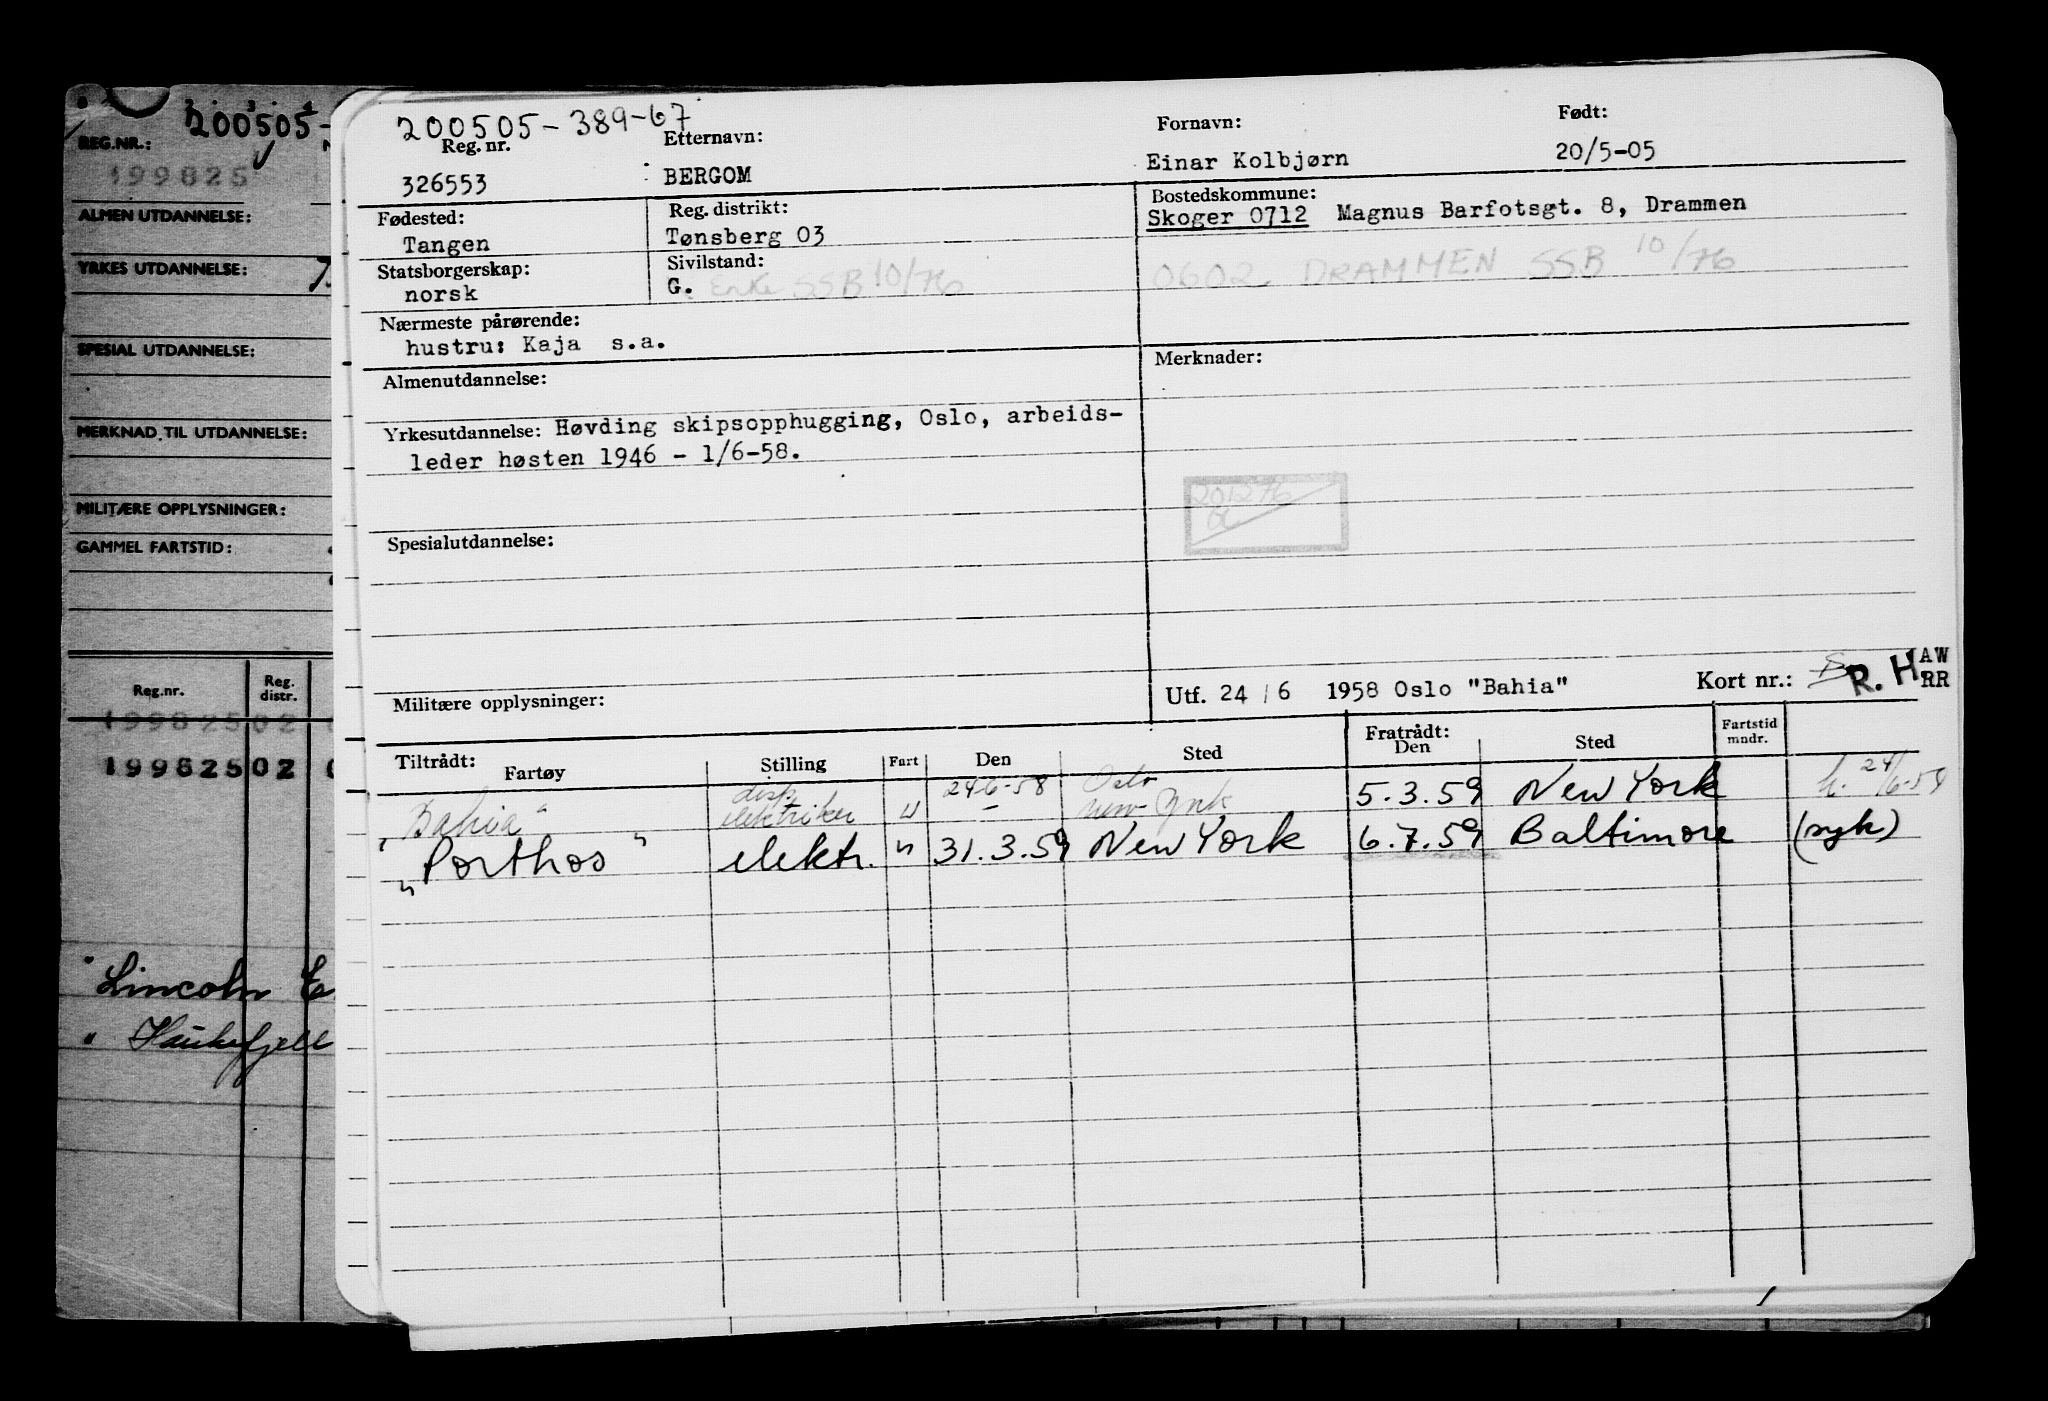 200505-
REG.NR.:
199825
ALMEN UTDANNELSE:
YRKES UTDANNELSE:
SPESIAL UTDANNELSE:
MERKNAD TIL UTDANNELSE:
MILITÆRE OPPLYSNINGER:
GAMMEL FARTSTID:
Reg.nr. Reg. distr.
199825 02
199825 02
"Lincoln E
" Haukefjell
200505-389-67
Reg. nr. Etternavn: Fornavn: Født:
326553 BERGOM Einar Kolbjørn 20/5-05
Fødested: Reg. distrikt: Bostedskommune:
Tangen Tønsberg 03 Skoger 0712 Magnus Barfotsgt. 8, Drammen
Statsborgerskap: Sivilstand:
norsk G. Enke SSB 10/76 0602 DRAMMEN SSB 10/76
Nærmeste pårørende:
hustru: Kaja s.a.
Almenutdannelse: Merknader:
Yrkesutdannelse: Høvding skipsopphugging, Oslo, arbeids-
leder høsten 1946 - 1/6-58.
201276
Spesialutdannelse:
Militære opplysninger: Utf. 24/6 1958 Oslo "Bahia" Kort nr.: R. H AW
RR
Tiltrådt: Fratrådt:
Fartøy Stilling Fart Den Sted Den Sted Fartstid mndr.
"Bahia" disp. elektriker u 24-6-58 Oslo New York 5.3.59 New York 24/6-58
"Porthos" elektr. " 31.3.59 New York 6.7.59 Baltimore (syk)